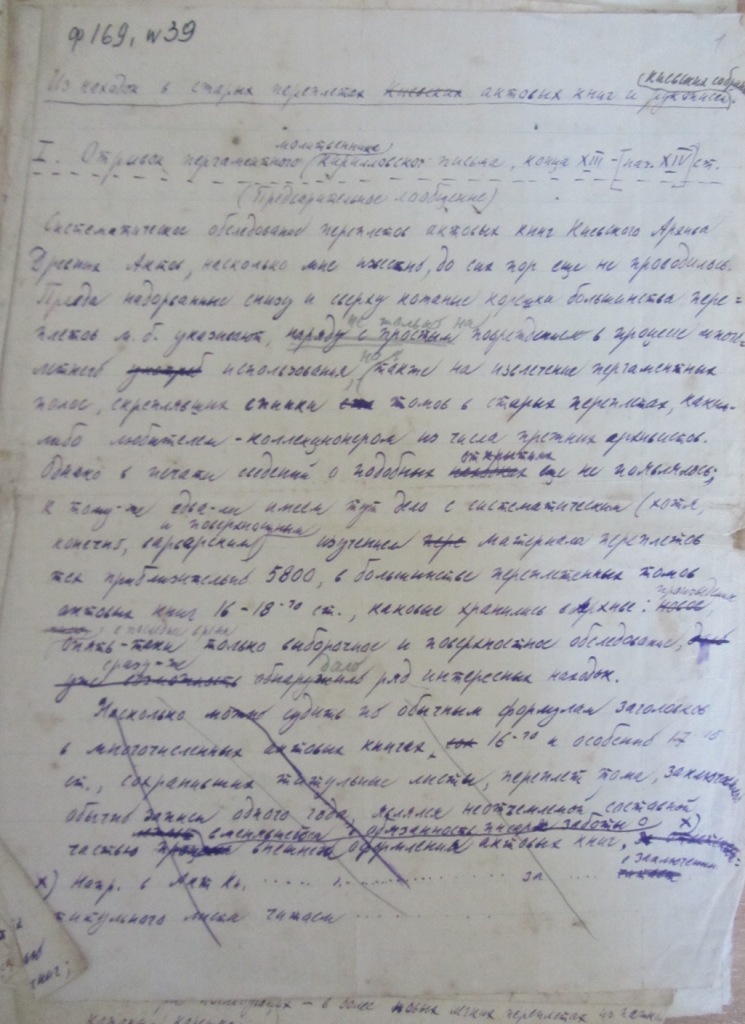 ф 169, № 39
1
(Киевских собран.
Из находок в старых переплетах Киевских актовых книг и рукописей).
молитвенника)
I. Отрывок пергаментного (Кирилловского письма, конца XIII - [нач. XIV] ст.
(Предварительное сообщение)
Систематическое обследование переплетов актовых книг Киевского Архива
Древних Актов, насколько мне известно, до сих пор еще не проводилось.
Правда надорванные снизу и сверху кожаные корешки большинства пере=
не только на
плетов м. б. указывают, наряду с простым повреждение в процессе много-
но и
летнего употреб использования, (также на извлечение пергаментных
полос, скреплявших спинки томов в старых переплетах, каким-
либо любителем-коллекционером из числа прежних архивистов.
открытиях
Однако в печати сведений о подобных находках еще не появлялось;
к тому-же едва-ли имеем тут дело с систематическим (хотя,
и поверхностным
конечно, варварским) изучением пере материала переплетов
тех приблизительно 5800, в большинстве переплетенных томов
произведенное
актовых книг 16-18-го ст., каковые хранились в Архиве:
в последнее время
опять-таки только выборочное и поверхностное обследование,
сразу-же дало
уже возможность обнаружило ряд интересных находок.
Насколько можно судить по обычным формулам заголовков
в многочисленных актовых книгах 16-го и особенно 17-го
ст., сохранивших титульные листы, переплет тома, заключавш.
обычно записи одного года, являлся неотъемлемой составной
вменявшейся в обязанность писаря заботы о x)
частью внешнего оформления актовых книг,
в заключении
x) Напр. в Акт Кн. ..... за
титульного листа читаем .....
книг;